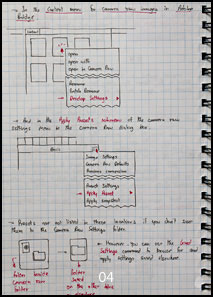 → In the Context menu for Camera Raw images in Adobe
Bridge
open
open with
open in Camera Raw
Rename
Batch Rename
Develop Settings
→ And in the Apply Presets submenu of the camera raw
settings menu in the camera raw dialog box.
Basic
Image Settings
Camera Raw Defaults
Previous conversion
Preset Settings
Apply Preset
Apply Snapshot
→ Presets are not listed in these locations if you don't save
them to the Camera Raw Settings folder.
→ However, you can use the Load
Settings command to browse for and
apply settings saved elsewhere.
folder
camera
raw
folder
04